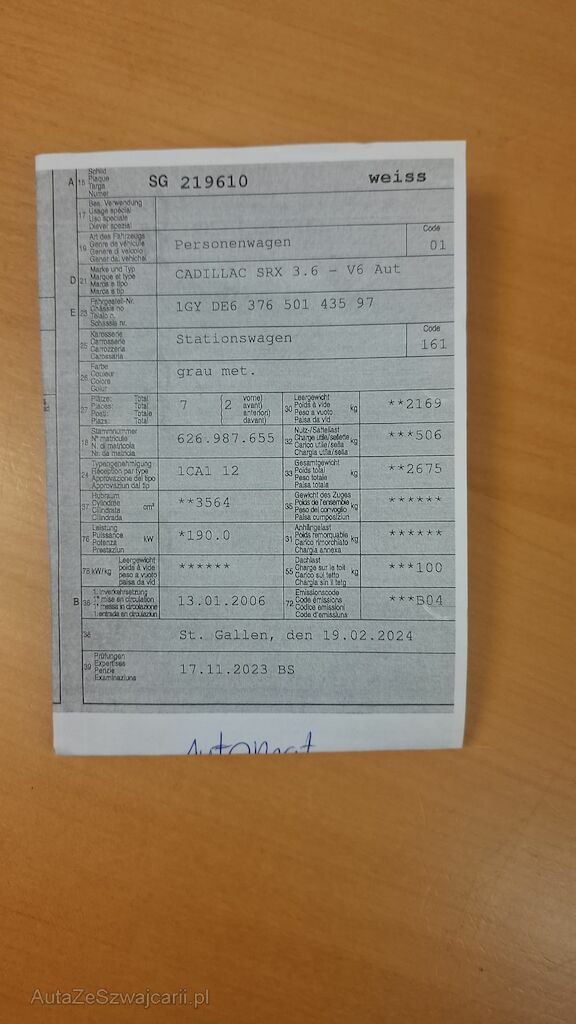 A 15 Schild Plaque Targa Numer SG 219610 weiss
17 Bes. Verwendung Usage spécial Uso speciale Diever spezial
19 Art des Fahrzeugs Genre de véhicule Genere di veicolo Gener dal vehichel Personenwagen Code 01
D 21 Marke und Typ Marque et type Marca e tipo Marca e tip CADILLAC SRX 3.6 - V6 Aut
E 23 Fahrgestell-Nr. Châssis no Telaio n. Schassis nr. 1GY DE6 376 501 435 97
25 Karosserie Carrosserie Carrozzeria Carossaria Stationswagen Code 161
26 Farbe Couleur Colore Colur grau met.
27 Plätze: Total Places: Total Posti: Totale Plazs: Total 7 (2 vorne) avant) anteriori) davant) 30 Leergewicht Poids à vide Peso a vuoto Paisa da vid kg **2169
18 Stammnummer N° matricule N. di matricola Nr. da matricla 626.987.655 32 Nutz-/Sattellast Charge utile/sellette Carico utile/sella Chargia utila/sella kg ***506
24 Typengenehmigung Réception par type Approvazione del tipo Approvaziun dal tip 1CA1 12 33 Gesamtgewicht Poids total Peso totale Paisa totala kg **2675
37 Hubraum Cylindrée Cilindrata Cilindrada cm³ **3564 35 Gewicht des Zuges Poids de l'ensemble Peso del convoglio Paisa cumposiziun kg ******
76 Leistung Puissance Potenza Prestaziun kW *190.0 31 Anhängelast Poids remorquable Carico rimorchiato Chargia annexa kg ******
78 kW/kg Leergewicht poids à vide peso a vuoto paisa da vid ****** 55 Dachlast Charge sur le toit Carico sul tetto Chargia sin il tetg kg ***100
B 36 1. Inverkehrsetzung 1re mise en circulation 1a messa in circolazione 1. entrada en circulaziun 13.01.2006 72 Emissionscode Code émissions Codice emissioni Code d'emissiuns ***B04
38 St. Gallen, den 19.02.2024
39 Prüfungen Expertises Perizie Examinaziuns 17.11.2023 BS
Automat
AutaZeSzwajcarii.pl